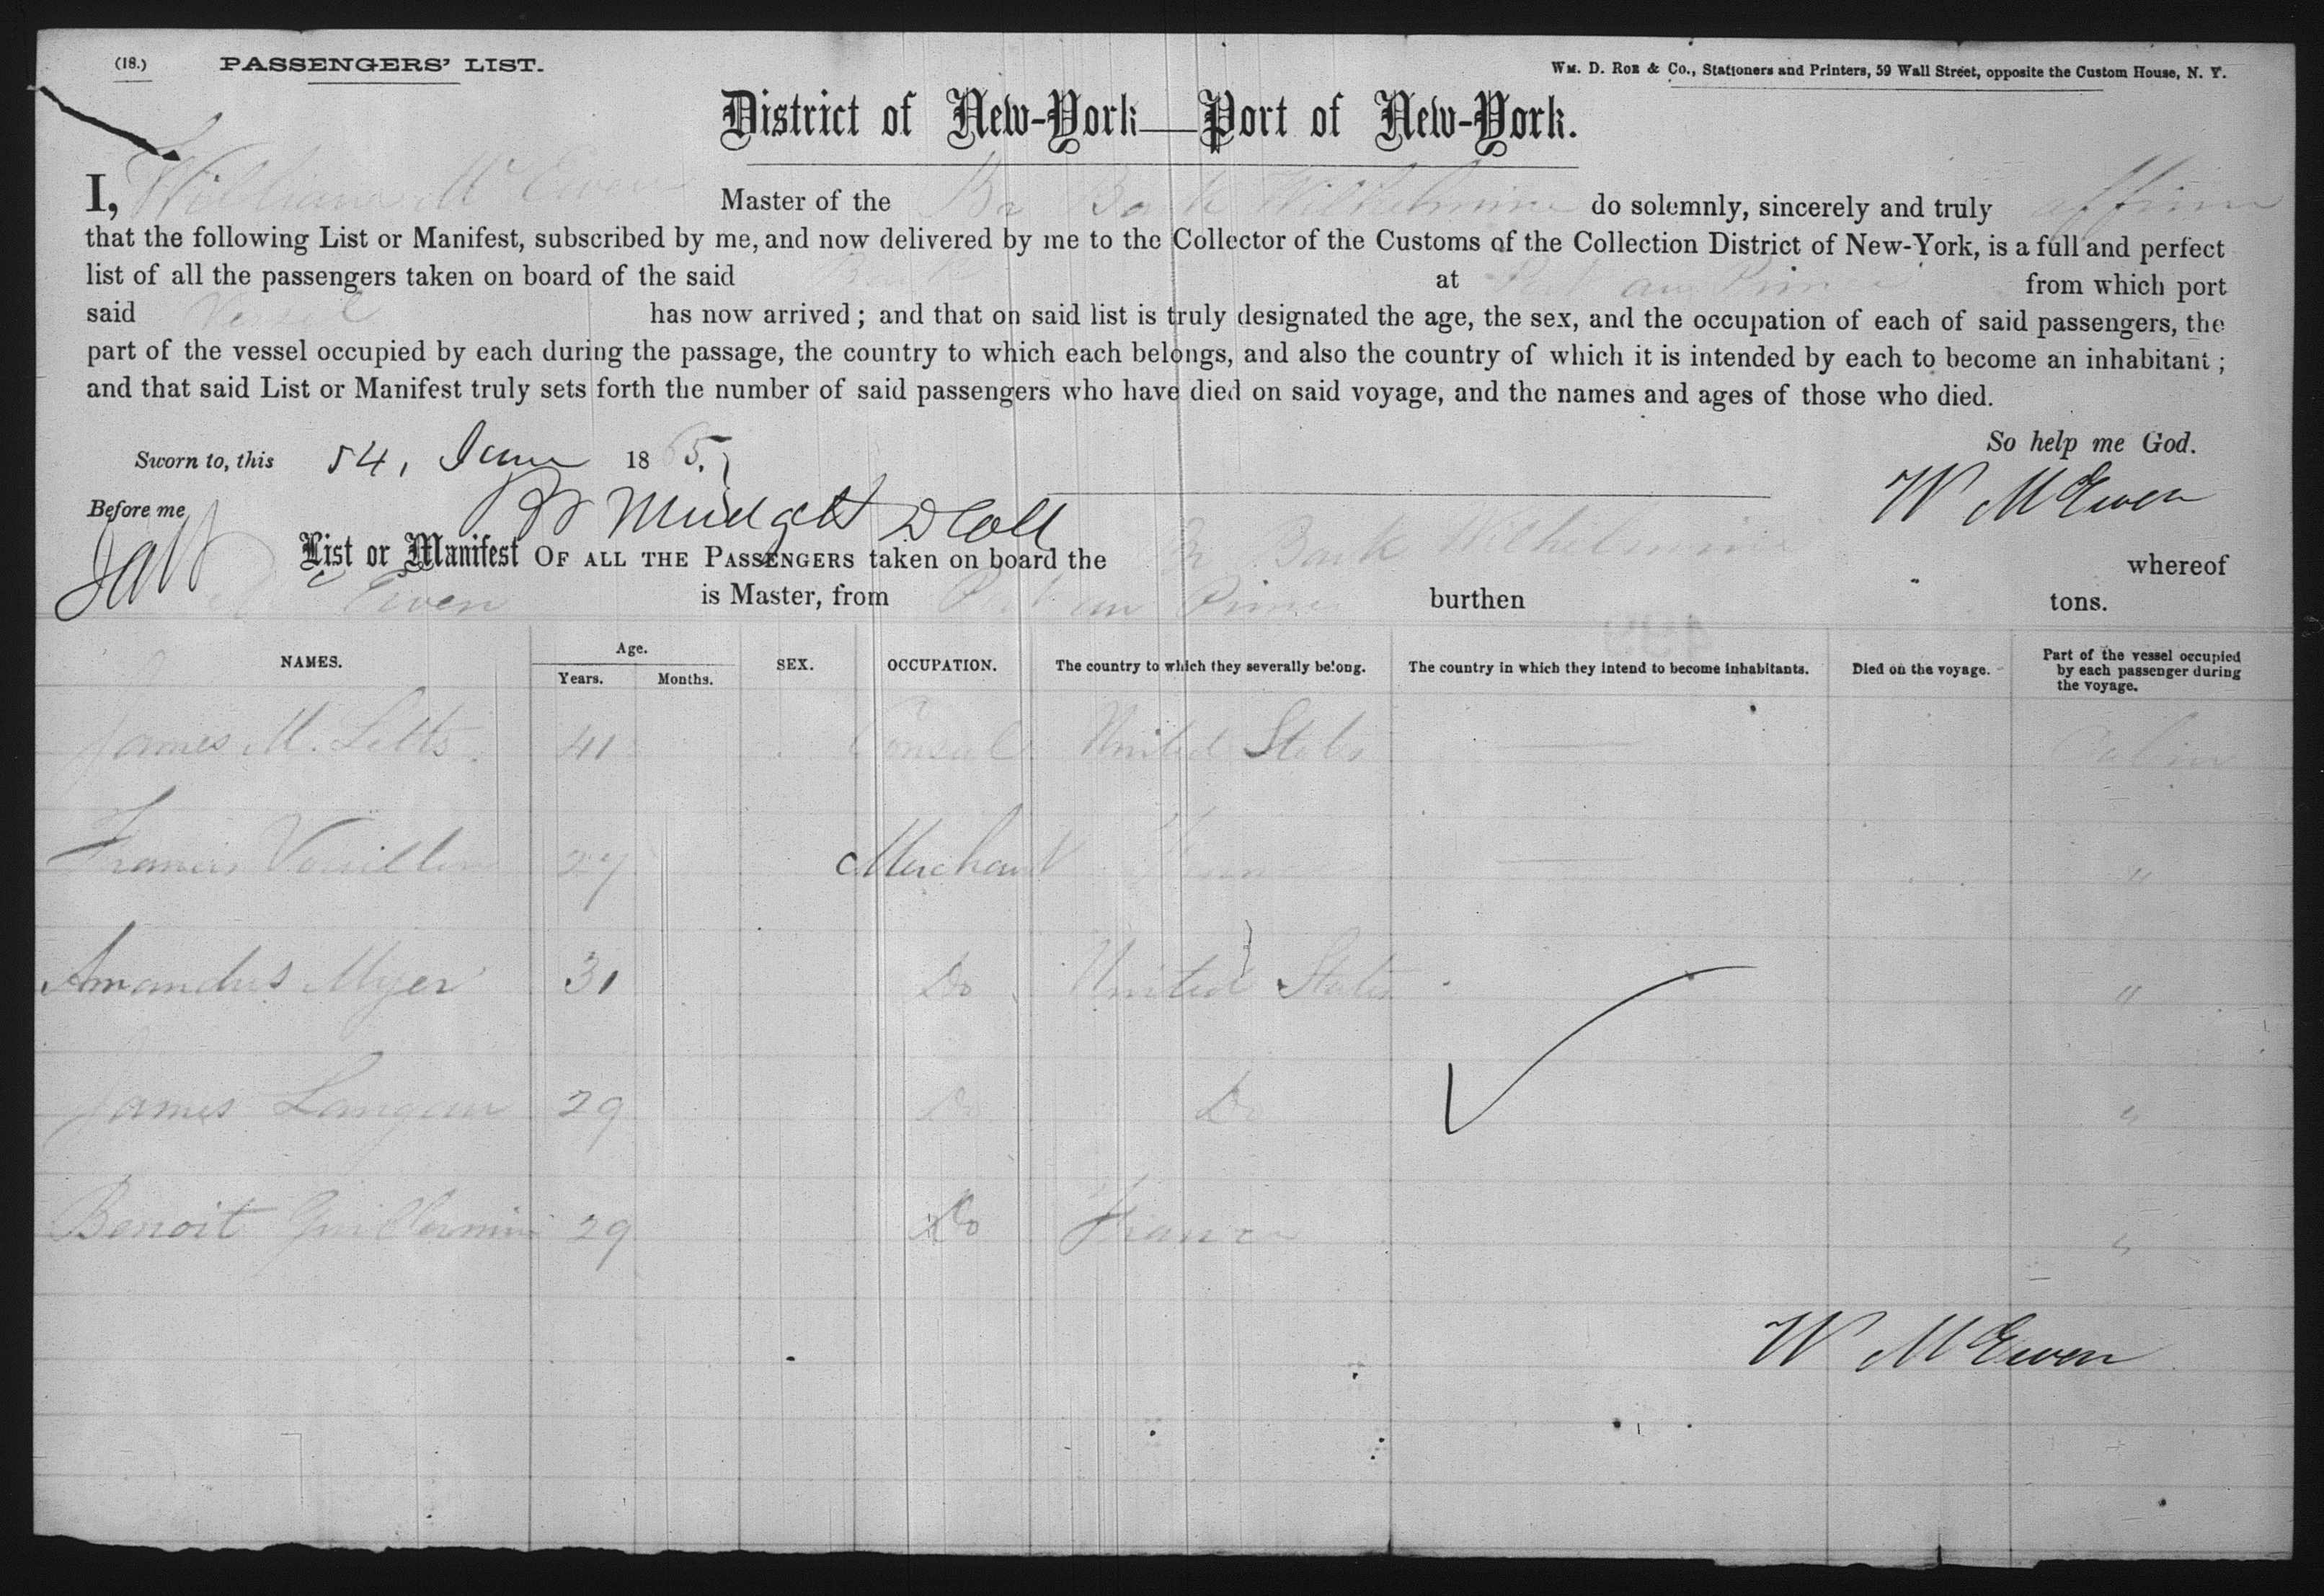 (18.) PASSENGERS' LIST. Wm. D. Roe & Co., Stationers and Printers, 59 Wall Street, opposite the Custom House, N. Y.
District of New-York—Port of New-York.
I, William McEwen Master of the Br Bark Wilhelmine do solemnly, sincerely and truly affirm
that the following List or Manifest, subscribed by me, and now delivered by me to the Collector of the Customs of the Collection District of New-York, is a full and perfect
list of all the passengers taken on board of the said Bark at Port au Prince from which port
said Vessel has now arrived; and that on said list is truly designated the age, the sex, and the occupation of each of said passengers, the
part of the vessel occupied by each during the passage, the country to which each belongs, and also the country of which it is intended by each to become an inhabitant;
and that said List or Manifest truly sets forth the number of said passengers who have died on said voyage, and the names and ages of those who died.
So help me God.
Sworn to, this June 1865.
W McEwen
Before me
List or Manifest OF ALL THE PASSENGERS taken on board the Br Bark Wilhelmine whereof
McEwen is Master, from Port au Prince burthen tons.
NAMES. Age. Years. Months. SEX. OCCUPATION. The country to which they severally belong. The country in which they intend to become inhabitants. Died on the voyage. Part of the vessel occupied by each passenger during the voyage.
James M. Letts. 41 Consul United States Cabin
Francis 27 Merchant "
Amandus Myer 31 Do United States "
James Langan 29 Do Do "
Benoit Guillermin 29 Do France "
W McEwen